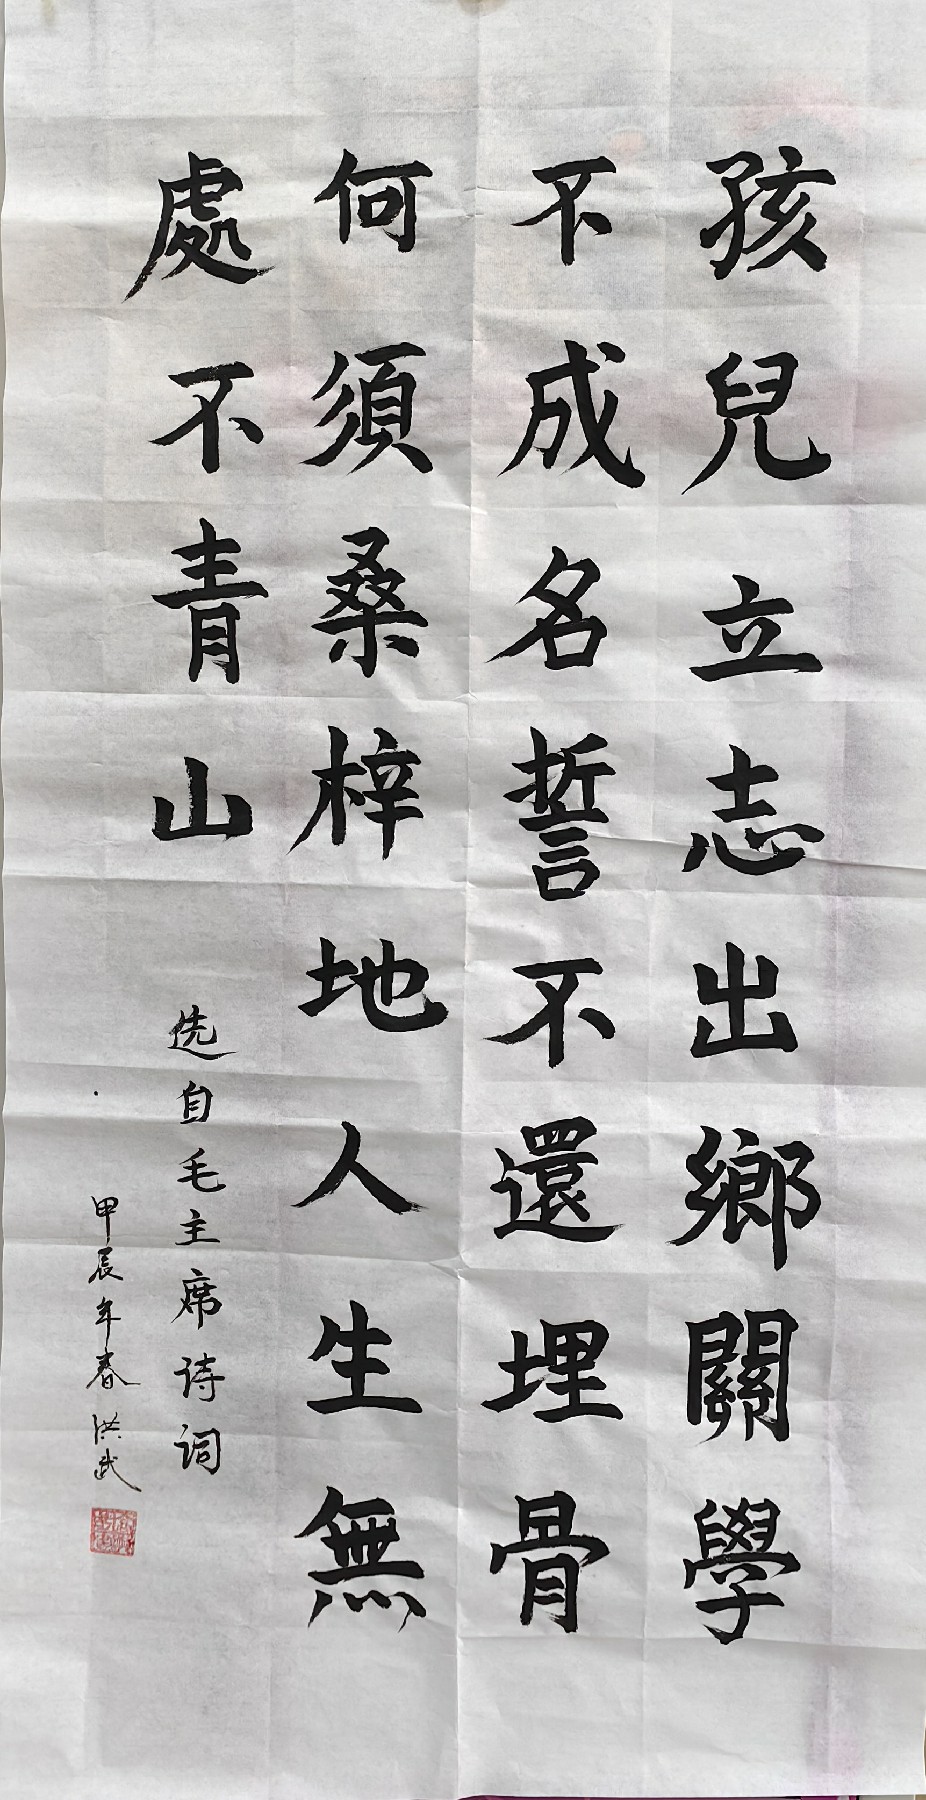 孩兒立志出鄉關學
不成名誓不還埋骨
何須桑梓地人生無
處不青山
选自毛主席诗词
甲辰年春洪武